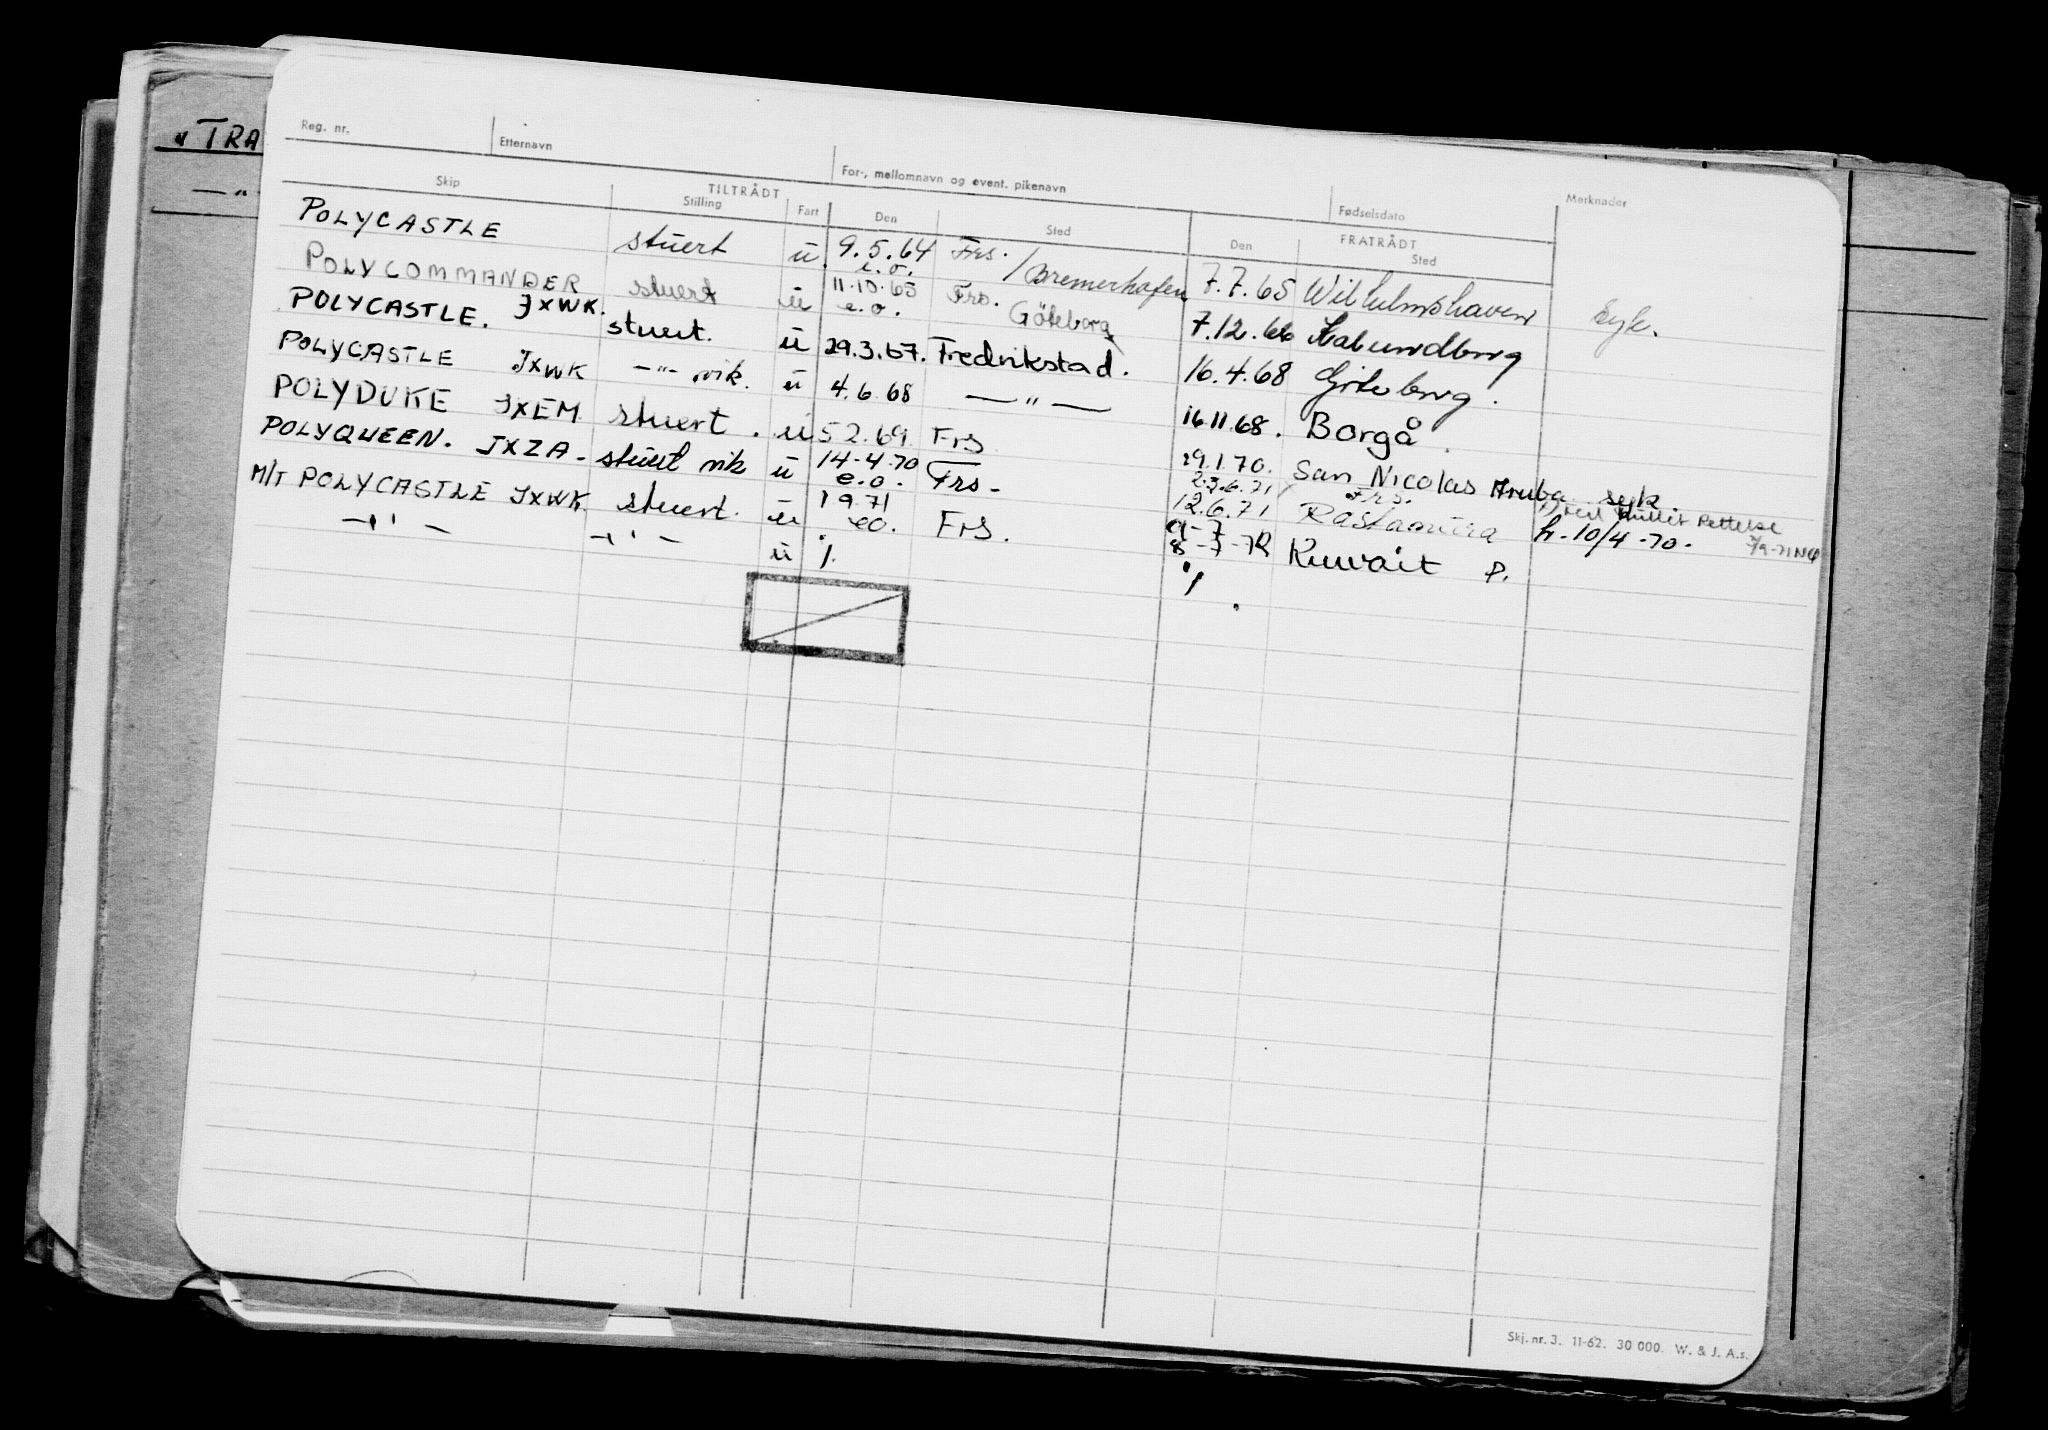 "TRA
— " —
Reg. nr. Etternavn For-, mellomnavn og event. pikenavn Fødselsdato Merknader
Skip TILTRÅDT Stilling Fart Den Sted FRATRÅDT Den Sted
POLYCASTLE stuert u. 9.5.64 e.o. Frs. / Bremerhafen 7.7.65 Wilhelmshaven syk.
POLYCOMMANDER stuert u 11.10.65 e.o. Frs. Göteborg 7.12.66 Kalundborg
POLYCASTLE. JXWK. stuert. u 29.3.67. Fredrikstad. 16.4.68 Göteborg.
POLYCASTLE JXWK —"— vik. u 4.6.68 — " — 16.11.68. Borgå.
POLYDUKE JXEM stuert. u 5 2.69 Frs 29.1.70. San Nicolas Aruba syk
POLYQUEEN. JXZA- stuert vik u 14-4.70 e.o. Frs- 12.6.71 h-10/4-70-
M/T POLYCASTLE JXWK stuert. u 1 9.71 eo. Frs. 8-7-72 Kuwait P.
—"— —"— u %. %.
Skj. nr. 3. 11-62. 30 000. W. & J. A.s.